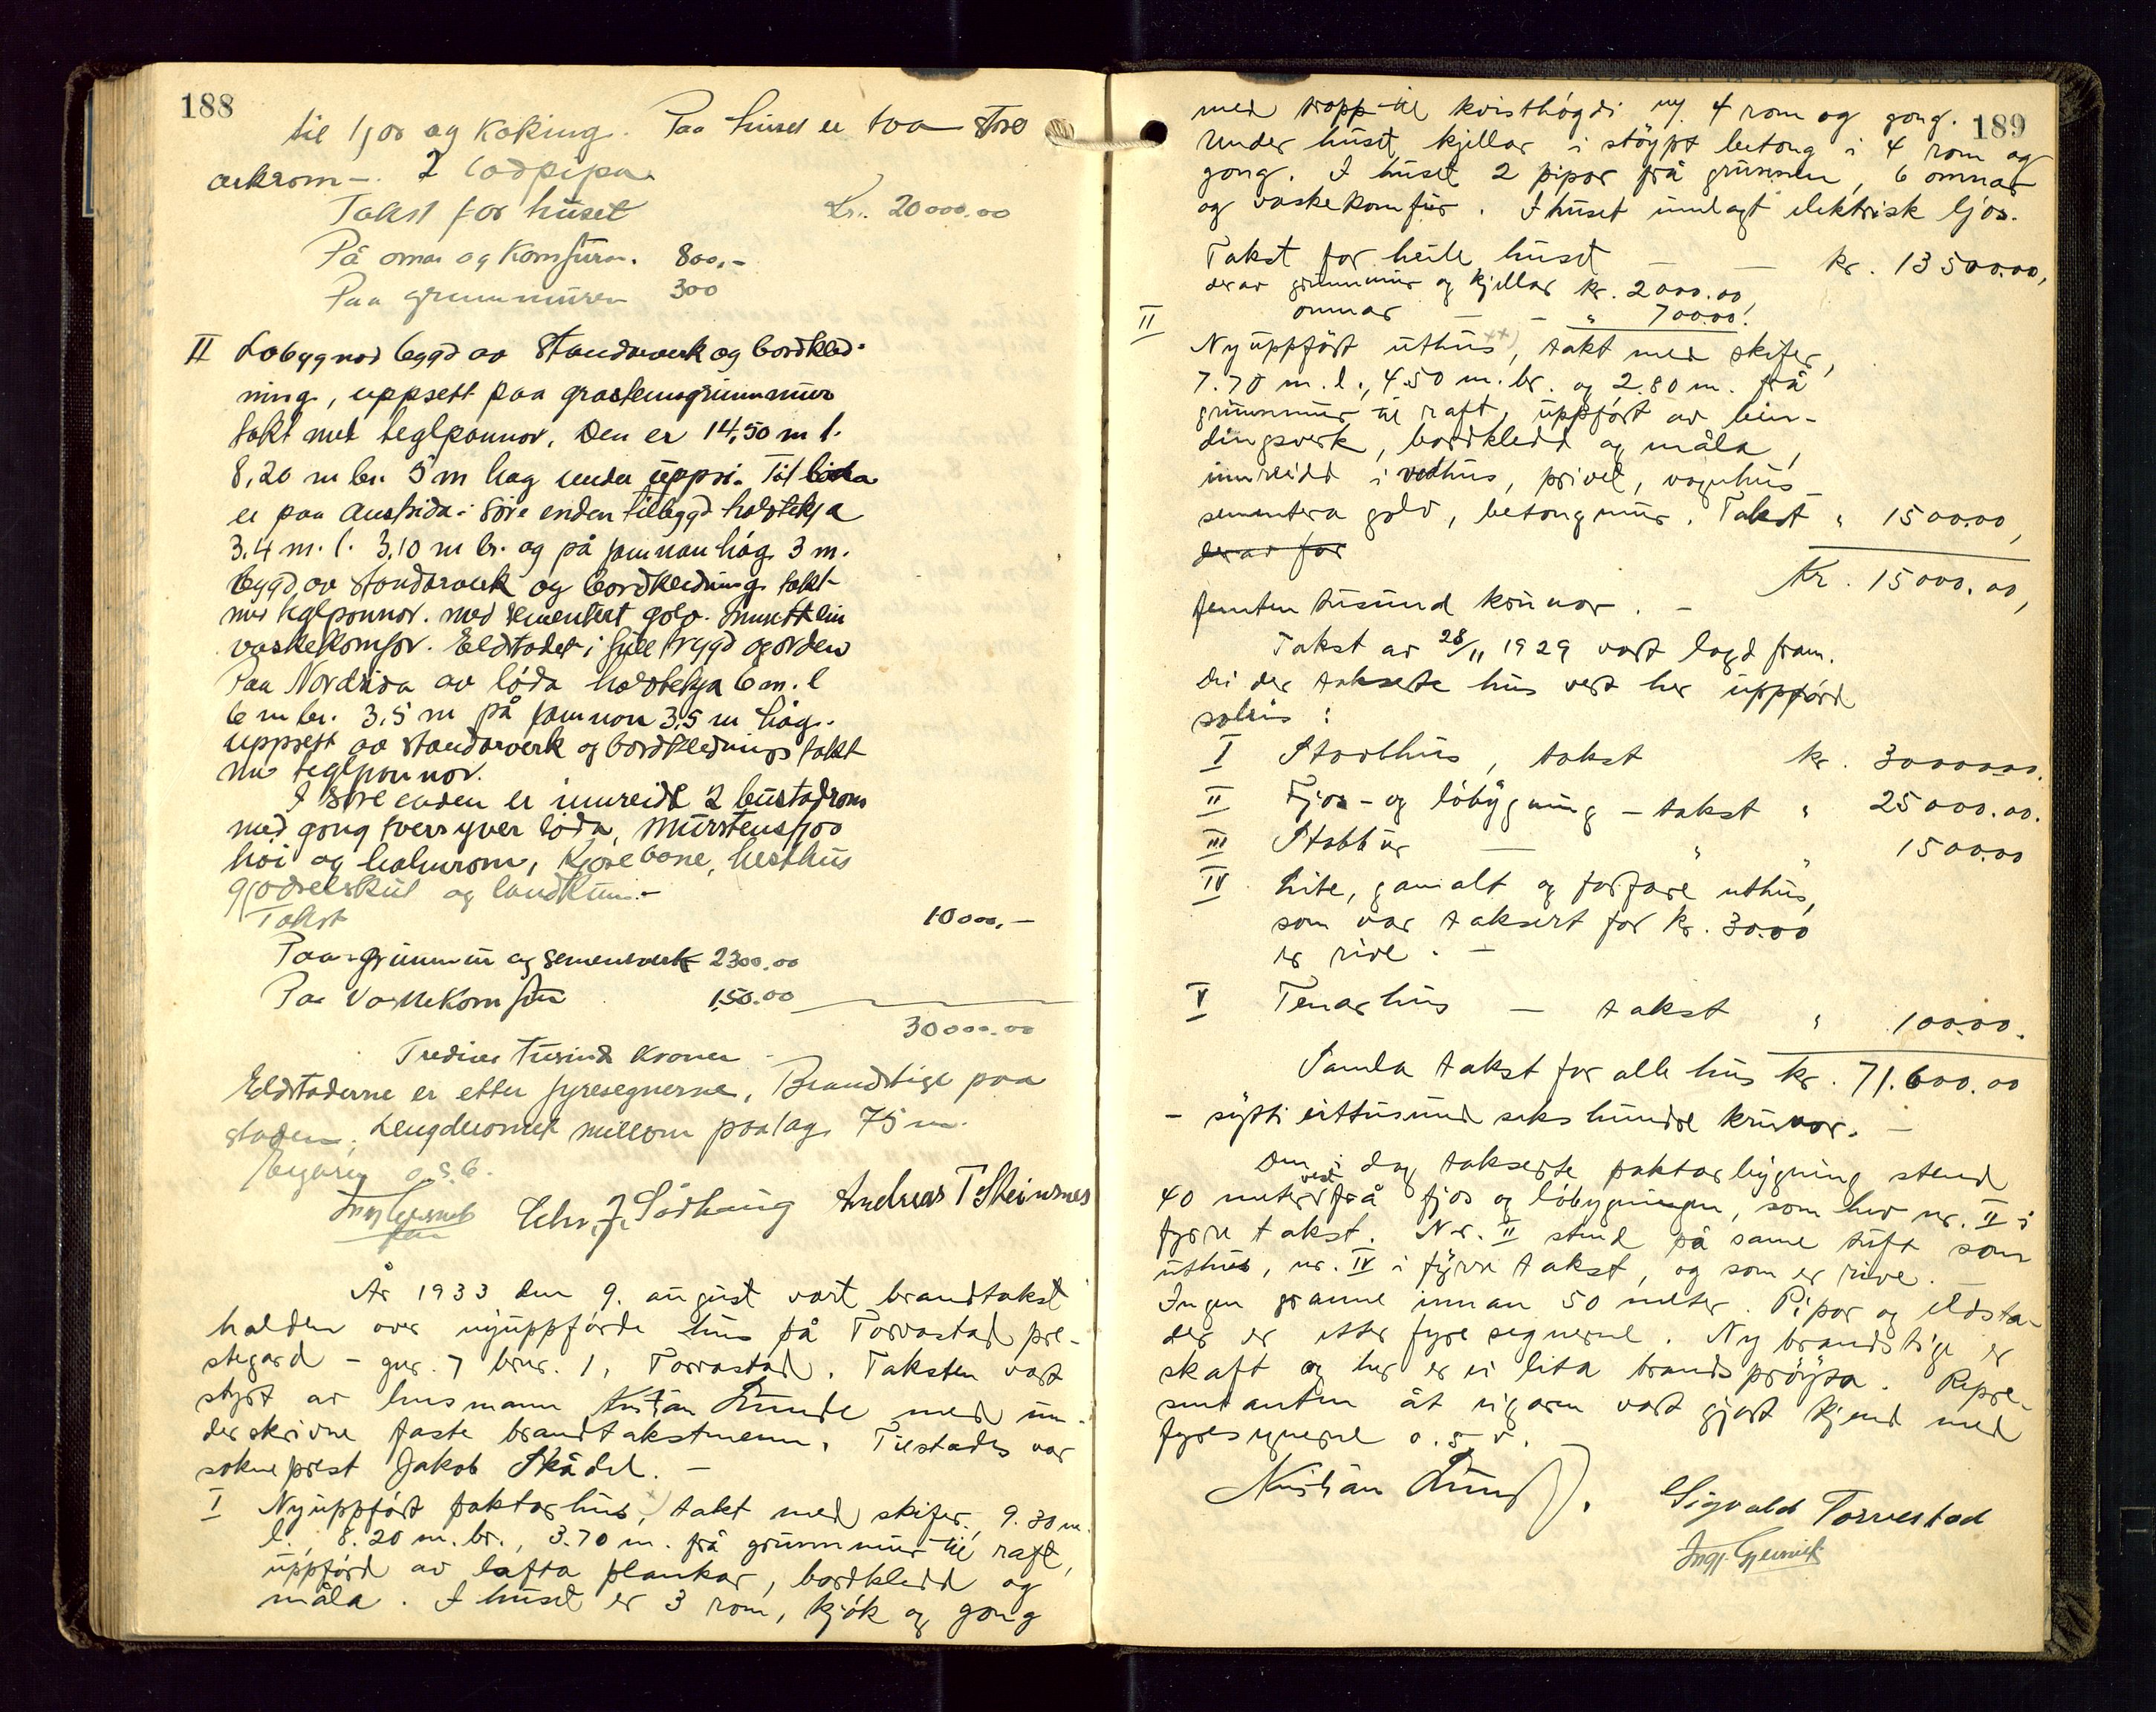 188
til ljos og Koking. Paa huset er too store
arkrom -. 2 lodpipa.
Takst for huset Kr. 20000.00
På omn og Komfürn. 800,-
Paa grunnmüren 300
II Lobygnad bygd av Standarverk og bordkled-
ning, uppsett paa grasteinsgrünnmür
takt med teglpannor. Den er 14,50 m l.
8,20 m br. 5 m høg under üppsi. Til
er paa Austsida i Søre enden tilbygd halvtekja
3.4 m. l. 3,10 m br. og på jamnan høg 3 m.
bygd av standarverk og bordkledning takt
me teglpannor. med sementert golv. Innsett ein
vaskekomfor. Eldstadet i full trygd og orden
Paa Nordsida av löda halvtekja 6 m. l
6 m br. 3,5 m på jamnon 3,5 m høg.
uppsett av standarverk og bordklednings takt
me teglpannor.
I Søre enden er innreidt 2 bustadrom
med gong tvers yver löda, mürsteinsfjos
høi og halmrom, Kjørebane, hesthüs
gjødselskül og landküm.-
Takst 10000,-
Paa grünnmür og sementverk 2300.00
Paa Vaskekomfür 150.00
30000.00
Tredive tusind Kroner
Eldstaderne er etter fyresegnerne, Brandstige paa
staden. Lengdeomet millom paalag 75 m.
Eigaren o.s.v.
Chr. J. Sörhaug Andreas T Steinsnes
År 1933 den 9. august vart brandtakst
halden over nyuppförde hus på Torvastad pre-
stegard - gnr. 7 brnr. 1, Torvastad. Taksten vart
styrt av lensmann Kristian Lünde med un-
derskrivne faste brandtakstmenn. Tilstades var
sokneprest Jakob Skådel. -
I Nyuppfört paktarhus x), takt med skifer, 9.30 m.
l., 8.20 m. br., 3.70 m. frå grünnmür til raft,
uppförd av lafta plankar, bordkledd og
måla. I huset er 3 rom, kjök og gong
189
med tropp til kvisthögdi m/ 4 rom og gong.
Under huset kjellar i stöypt betong i 4 rom og
gong. I huset 2 pipor frå grunnen, 6 omnar
og vaskekomfür. I huset innlagt elektrisk ljos.
Takst for heile huset - - kr. 13500.00,
derav grunnmur og kjellar kr. 2000.00,
omnar - - " 700.00.
II Nyuppfört uthus xx), takt med skifer,
7.70 m. l., 4.50 m. br. og 2.80 m. frå
grunnmur til raft, uppfört av bin-
dingsverk, bordkledd og måla,
innreidd i vedhus, privet, vognhus
sementera golv, betongmur. Takst " 1500.00,
derav for
Kr. 15000.00,
femten tusund krunor. -
Takst av 28/11 1929 vart lagd fram.
Dei der takserte hus vert her uppförd
soleis:
I Storthus, takst kr. 30000.00.
II Fjos- og löbygning - takst " 25000.00.
III Stabbür - " " 1500.00
IV Lite, gamalt og forfare uthus,
som var taksert for kr. 30.00
er rive. -
V Tenarhus - takst " 100.00.
Samla takst for alle hus kr. 71.600.00
- sytti eittusund seks hundre krunor. -
Den i dag takserte paktarbygning stend
40 meter vest frå fjos og löbygningen, som hev nr. II i
fyrre takst. Nr. II stend på same tuft som
uthus, nr. IV i fyrre takst, og som er rive. -
Ingen granne innan 50 meter. Pipor og eldsta-
der er etter fyresegnerne. Ny brandstige er
skaft og her er ei lita brandspröyta. Repre-
sentanten åt eigaren vart gjort kjend med
fyresegnerne o. s. v.
Kristian Lunde. Sigvald Torvestad